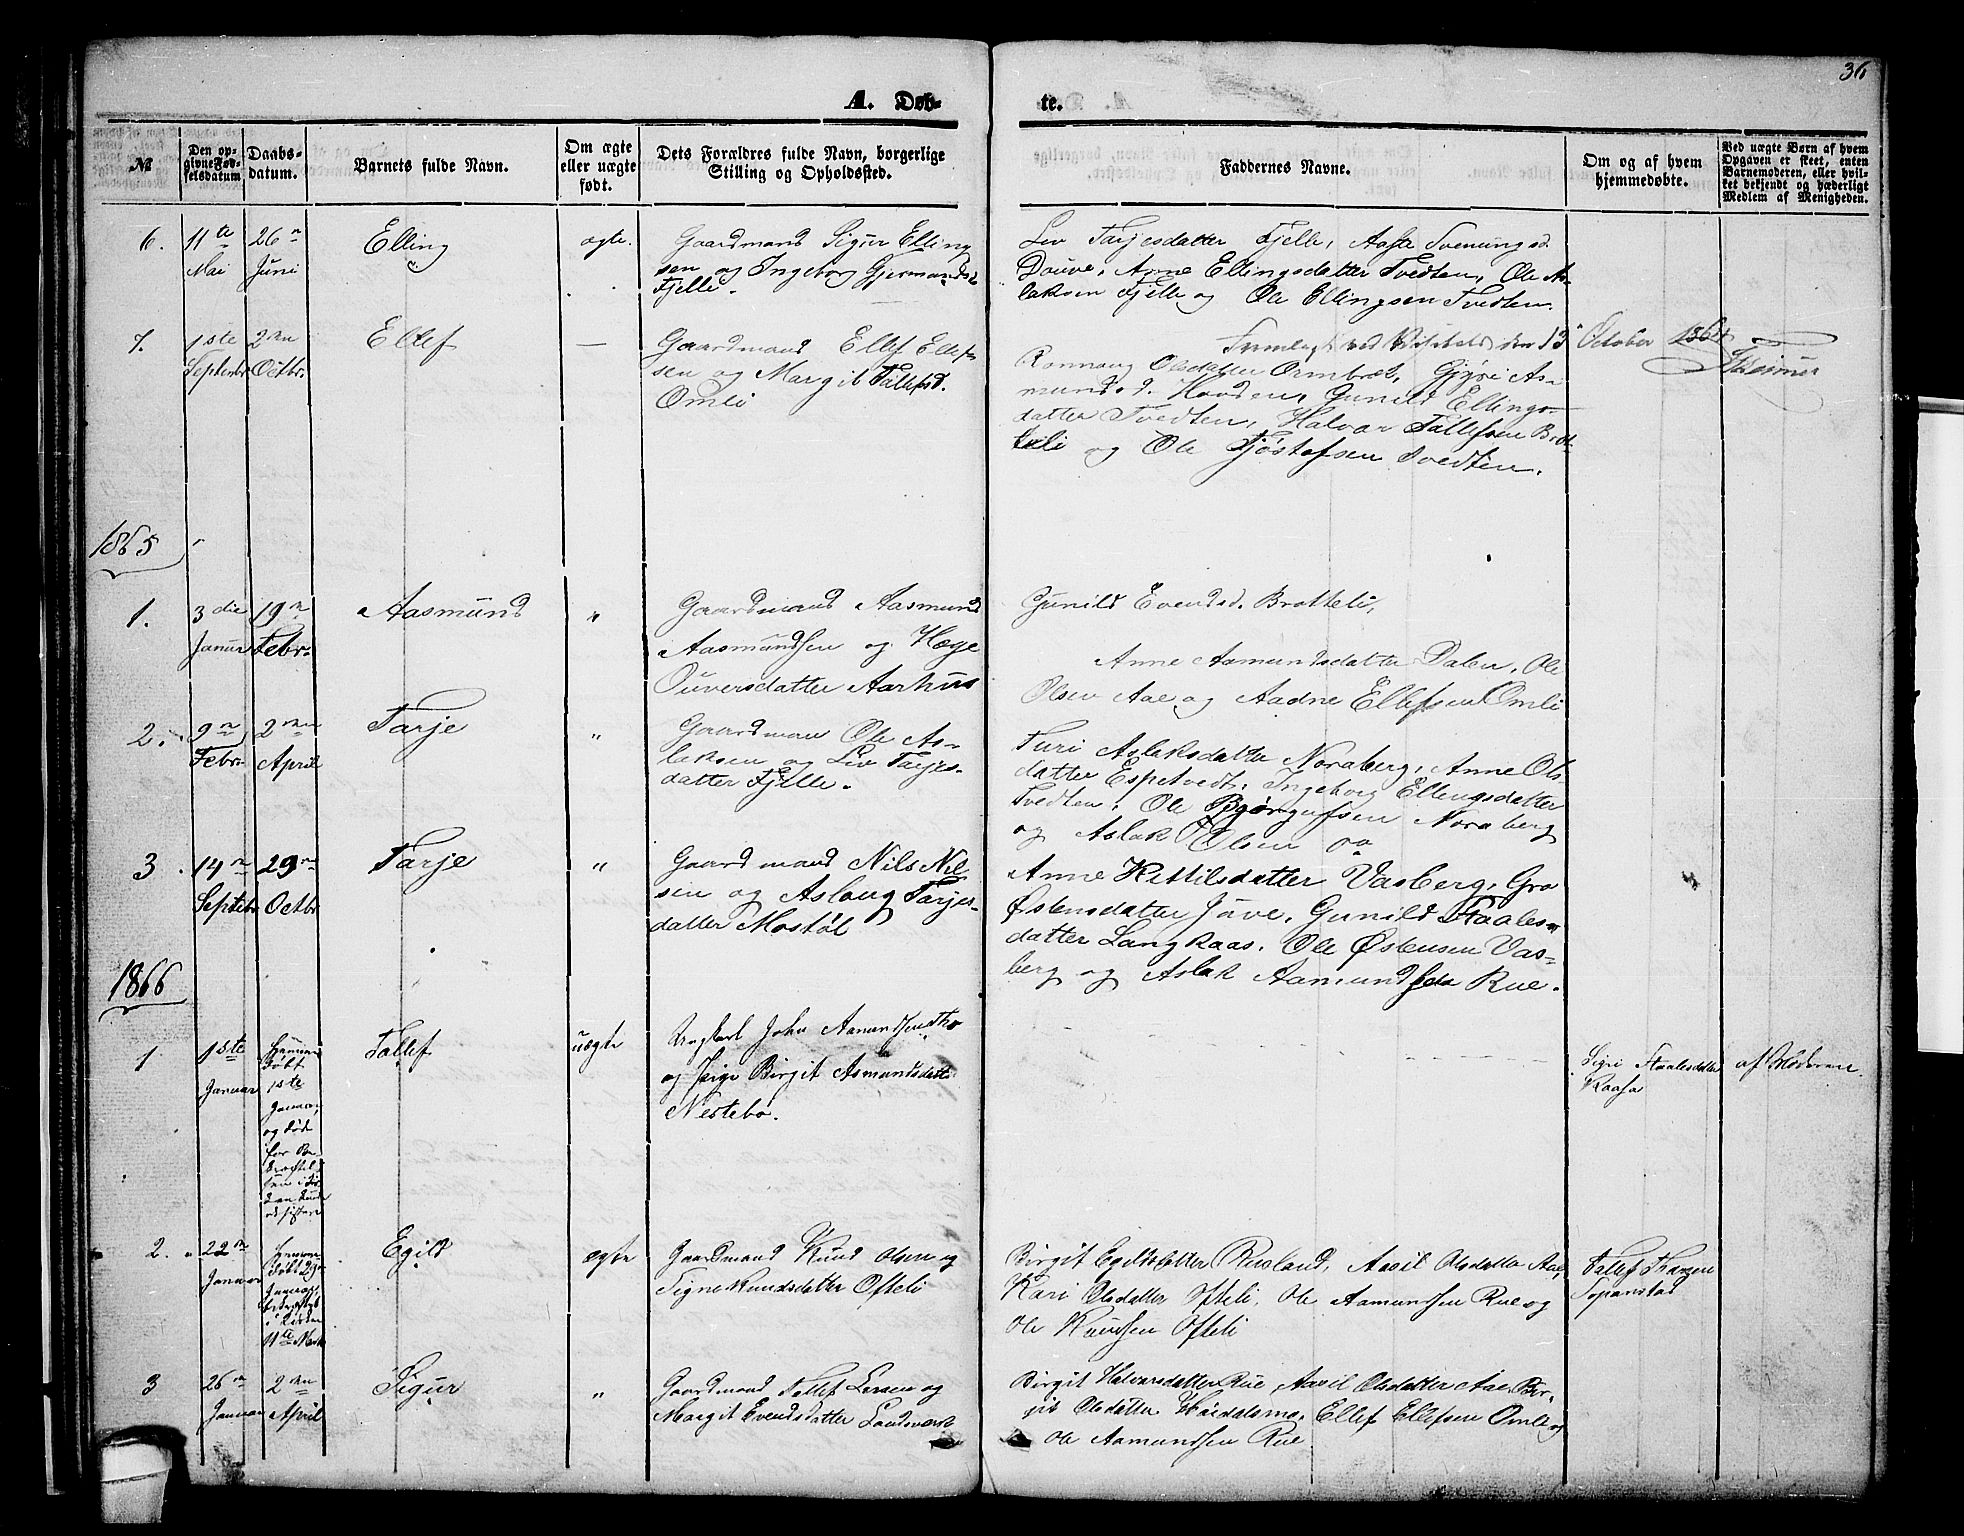 36
A. Døb-
te.
№
Den op-
givne Fød-
selsdatum.
Daabs-
datum.
Barnets fulde Navn.
Om ægte
eller uægte
født.
Dets Forældres fulde Navn, borgerlige
Stilling og Opholdssted.
Faddernes Navne.
Om og af hvem
hjemmedøbte.
Ved uægte Børn af hvem
Opgaven er skeet, enten
Barnemoderen, eller hvil-
ket bekjendt og hæderligt
Medlem af Menigheden.
6.
11te
Mai
26n
Juni
Elling
ægte.
Gaardmand Sigur Elling
sen og Ingeborg Gjermundsd.
Fjelle.
Liv Tarjesdatter Fjelle, Aase Tveningsd.
Douve, Anne Ellingsdatter Tvedten, Ole As-
laksen Fjelle og Ole Ellingsen Tvedten.
7.
1ste
Septembr
2den
Octbr.
Ellef
—
Gaardmand Ellef Ellef-
sen og Margit Tallefsd.
Omli
Fremlagt ved Visitats den 13 October 1864
Rannaug Olsdatter Ormbrek, Gjyri As-
mundsd. Hovden, Gunild Ellings-
datter Tvedten, Halvor Tallefsen Brot-
teli og Ole Tjøstofsen Tvedten.
1865
1.
3die
Januar
19n
Febr.
Aasmund
"
Gaardmand Aasmund
Aasmundsen og Hæge
Ouversdatter Aarhuus
Gunild Evendsd. Brotteli,
Anne Aamundsdatter Dalen, Ole
Olsen Aae og Aadne Ellefsen Omli
2.
9n
Febr.
2den
April
Tarje
"
Gaardman Ole As-
laksen og Liv Tarjes-
datter Fjelle.
Turi Aslaksdatter Noraberg, Anne Ols-
datter Espetvedt, Ingeborg Ellingsdatter
Tvedten, Ole Bjørgufsen Noraberg
og Aslak Olsen
3.
14n
Septebr
29n
Octbr
Tarje
"
Gaardmand Nils Nil-
sen og Aslaug Tarjes-
datter Mostøl
Anne Kittilsdatter Vasberg, Gro
Østensdatter Juve, Gunild Staales-
datter Langkaas, Ole Østensen Vas-
berg og Aslak Aamundsen Rue.
1866
1
1ste
Januar
Hjemme
døbt
1ste
Januar,
og død
før
Tallef
uægte
Ungkarl John Aamundsen
og Pige Birgit Asmundsdatter
Nestebø.
Sigri Staalesdatter
Raasa
af Moderen.
2.
22n
Januar
Hjemme
døbt
Januar,
i Kirken
11te Marts
Egild
ægte
Gaardmand Knud Olsen og
Signe Knudsdatter Ofteli
Birgit Egildsdatter Rusland, Aasil Olsdatter Aae,
Kari Olsdatter Ofteli, Ole Aamundsen Rue og
Ole Knudsen Ofteli
Tallef
3
26n
Januar
2den
April
Sigur
"
Gaardmand Tallef Larsen og
Margit Evendsdatter Landsverk
Birgit Halvorsdatter Rue, Aasil Olsdatter Aae, Bir-
git Olsdatter Haidalsmo, Ellef Ellefsen Omli og
Ole Aamundsen Rue